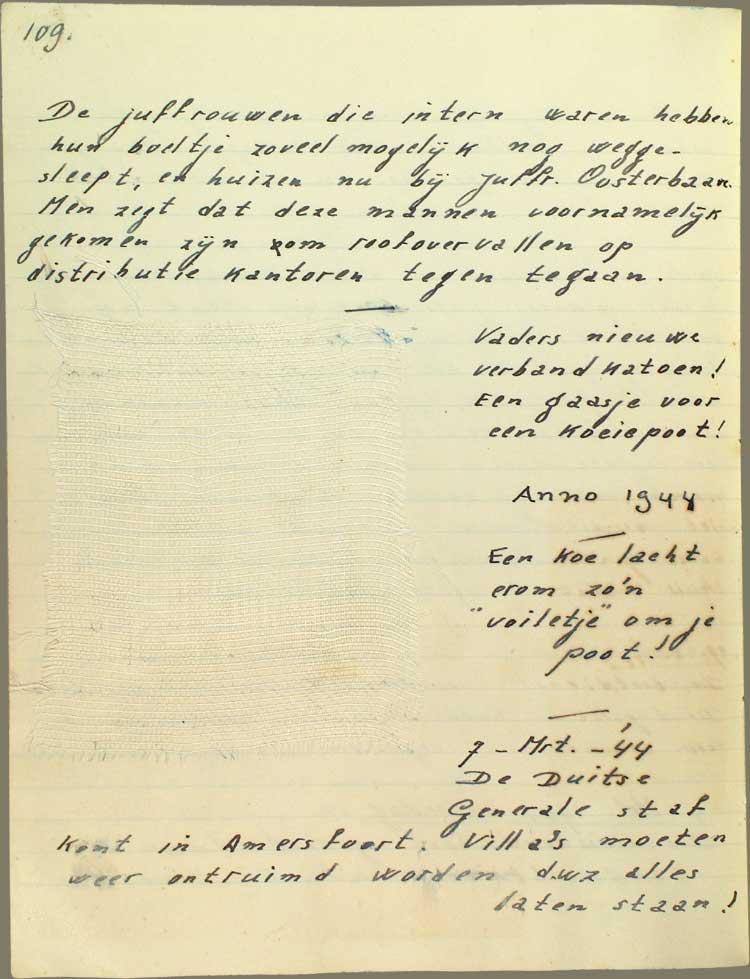 109.
De juffrouwen die intern waren hebben
hun boeltje zoveel mogelijk nog wegge-
sleept, en huizen nu bij juffr. Oosterbaan.
Men zegt dat deze mannen voornamelijk
gekomen zijn om roofovervallen op
distributie kantoren tegen tegaan.
Vaders nieuwe
verband katoen!
Een gaasje voor
een koeiepoot!
Anno 1944
Een koe lacht
erom zo'n
"voiletje" om je
poot!
7 - Mrt. - '44
De Duitse
Generale staf
komt in Amersfoort. Villa's moeten
weer ontruimd worden d.w.z alles
laten staan!